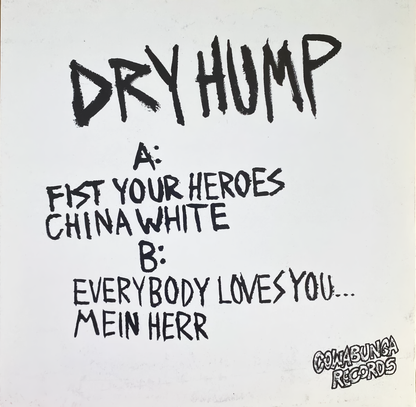 DRY HUMP
A:
FIST YOUR HEROES
CHINA WHITE
B:
EVERYBODY LOVES YOU...
MEIN HERR
COWABUNGA
RECORDS